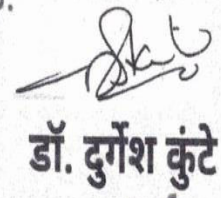 डॉ. दुर्गेश कुंटे